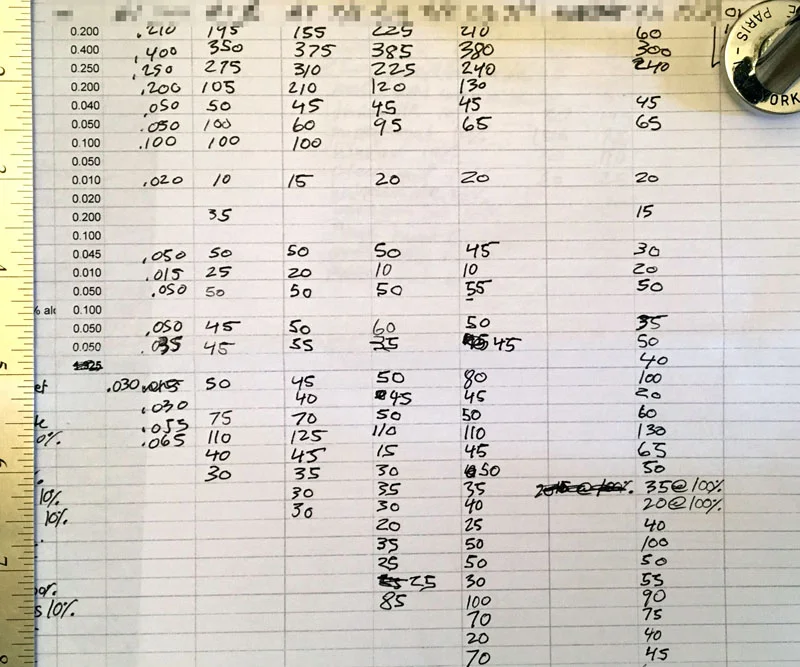 0.200 .210 195 155 225 210 60
0.400 .400 350 375 385 380 300
0.250 .250 275 310 225 240 240
0.200 .200 105 210 120 130
0.040 .050 50 45 45 45 45
0.050 .050 100 60 95 65 65
0.100 .100 100 100
0.050
0.010 .020 10 15 20 20 20
0.020
0.200 35 15
0.100
0.045 .050 50 50 50 45 30
0.010 .015 25 20 10 10 20
0.050 .050 50 50 50 55 50
0.100
0.050 .050 45 50 60 50 35
0.050 .035 45 55 35 45 50
40
.030 50 45 50 80 100
.030 40 45 45 20
.055 75 70 50 50 60
0%. .065 110 125 110 110 130
40 45 15 45 65
30 35 30 50 50
10% 30 35 35 35@100%
10%. 30 30 40 20@100%.
20 25 40
35 50 100
25 50 50
25 30 55
s 10%. 85 100 90
70 75
20 40
70 45
PARIS
YORK